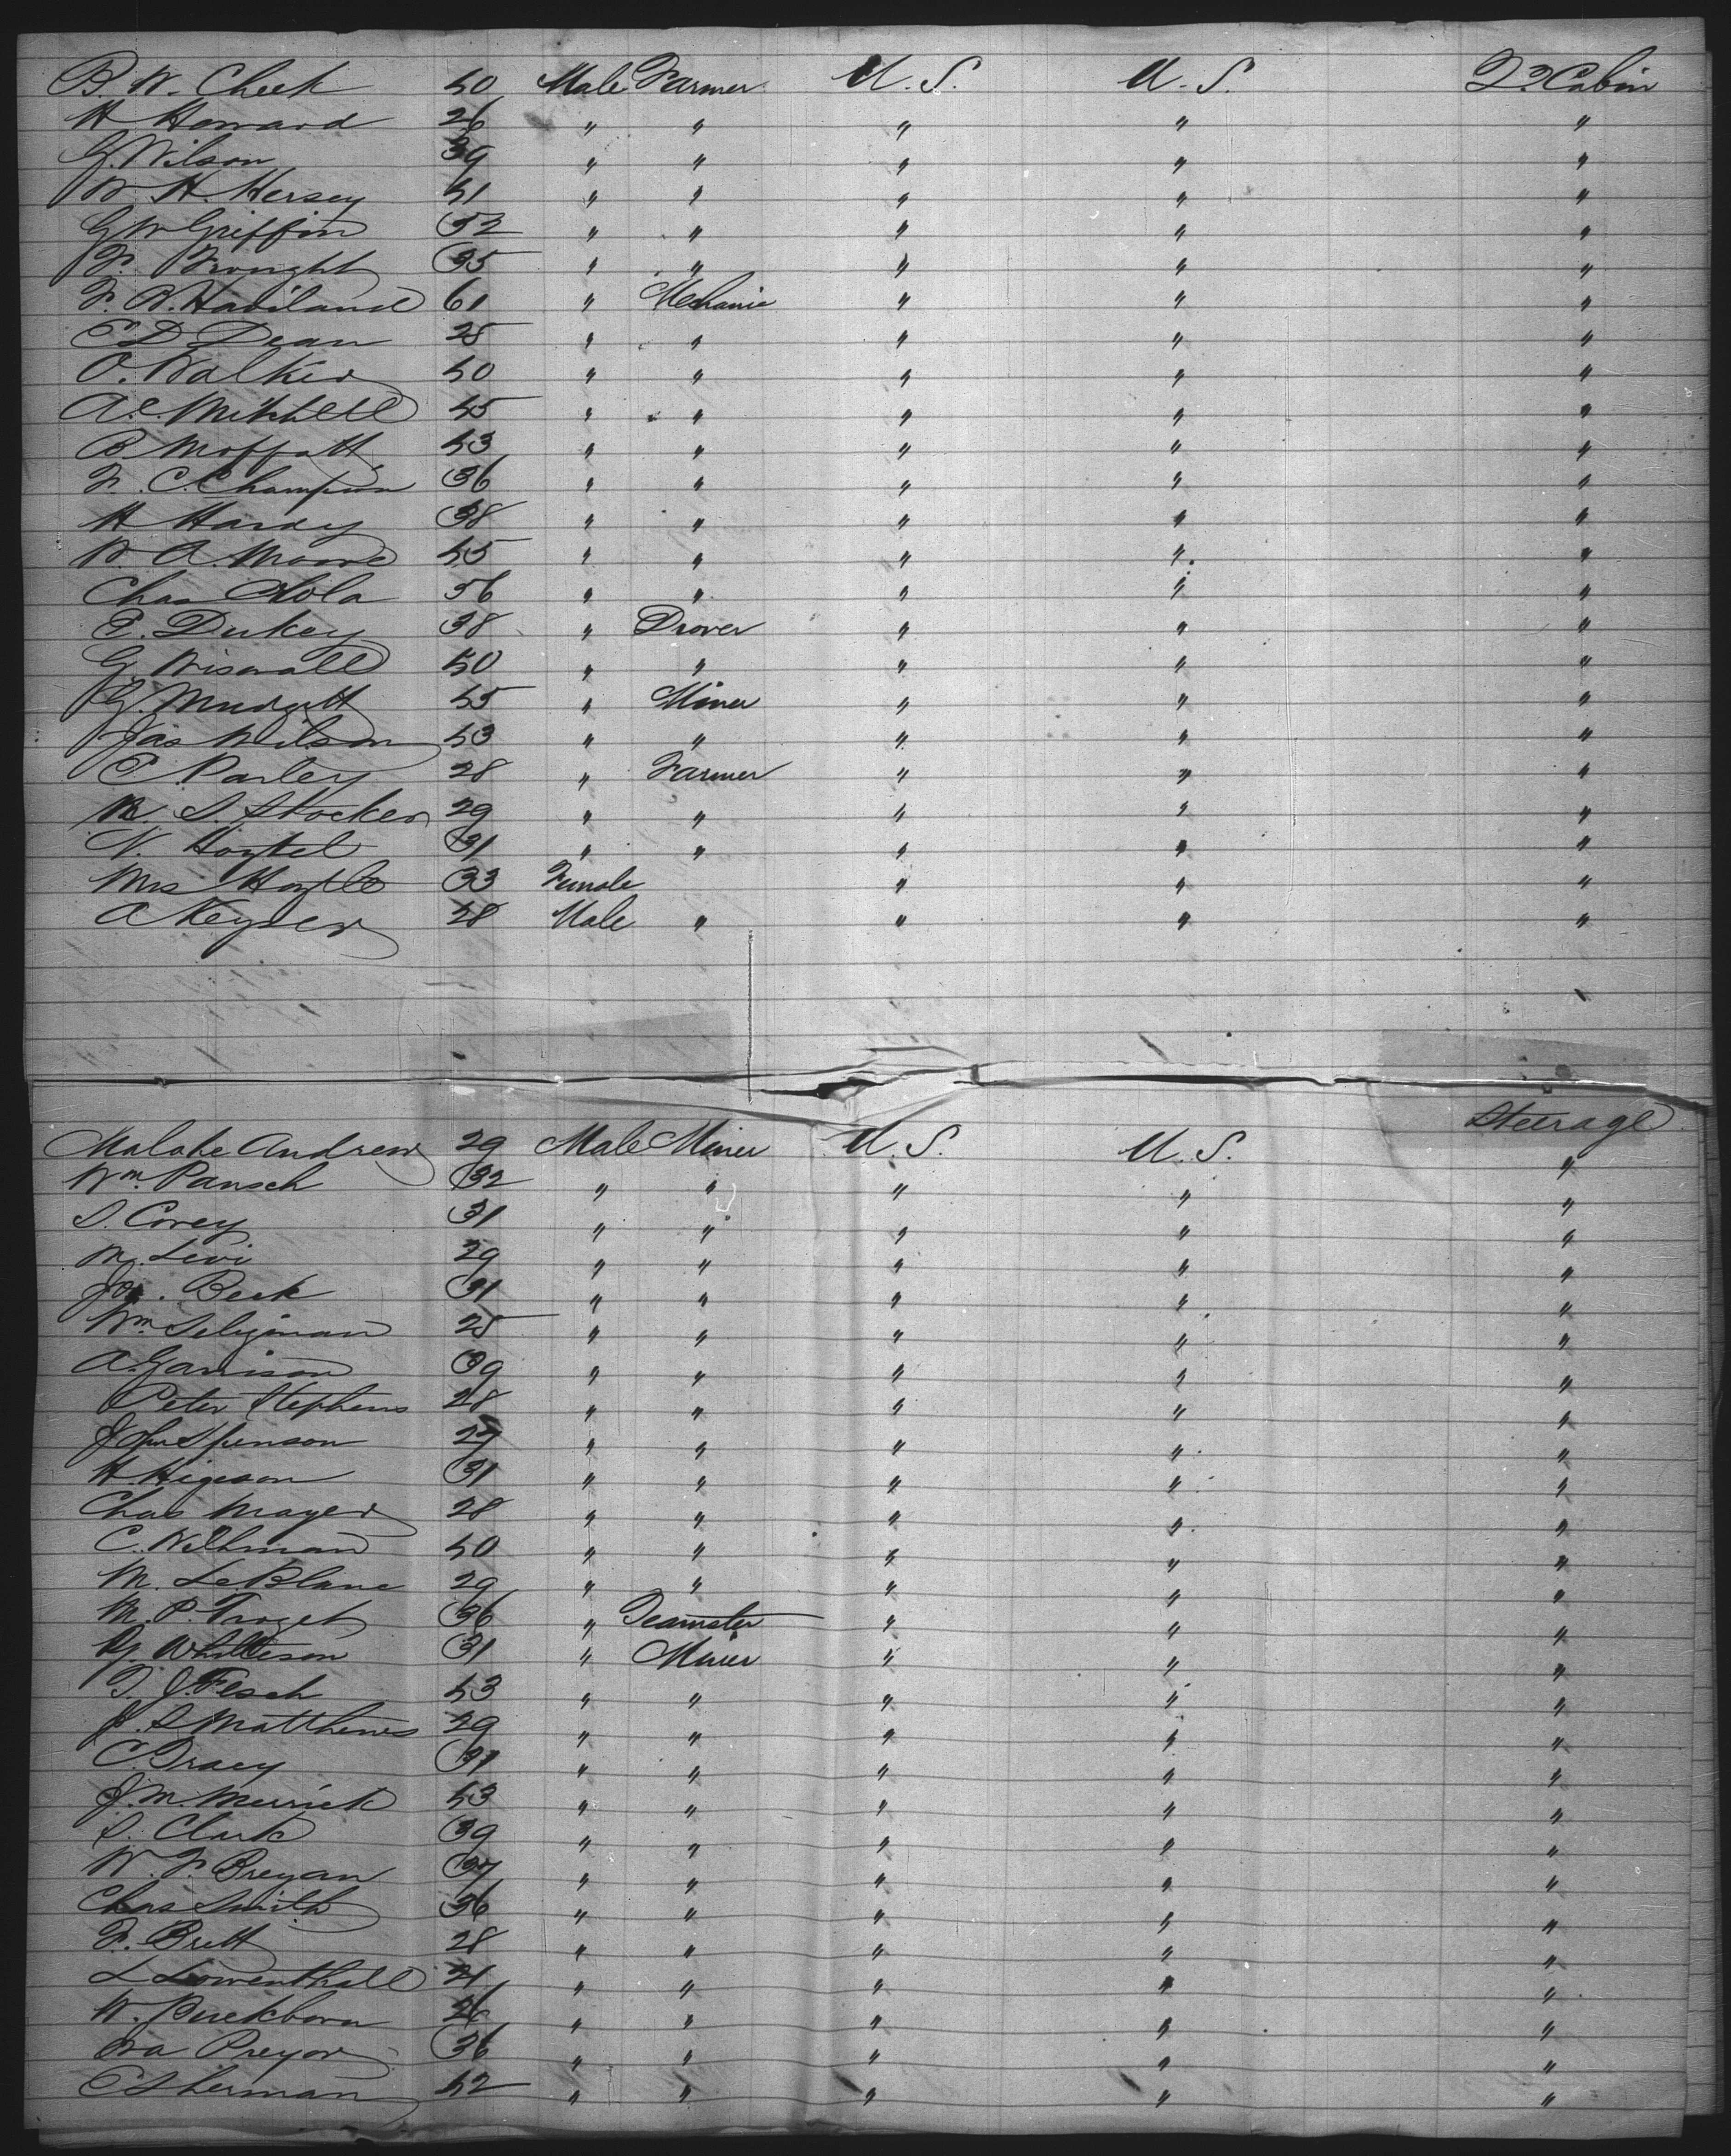 B. W. Cheek 40 Male Farmer U. S. U. S. 2ᵈ Cabin
H Howard 26 " " " " "
G. Wilson 39 " " " " "
W. H. Hersey 41 " " " " "
G W Griffin 52 " " " " "
F. 35 " " " " "
F. B. Haviland 61 " Mechanic " " "
E D Dean 25 " " " " "
O. Walker 40 " " " " "
A. C. Mitchell 45 " " " " "
B. Moffatt 43 " " " " "
F. C. Champion 36 " " " " "
H Hardy 38 " " " " "
W. A. Moore 45 " " " " "
Chas 56 " " " " "
E. Dukey 38 " Drover " " "
G. Wiswall 40 " " " " "
G. Mudgett 45 " Miner " " "
Jas Wilson 43 " " " " "
C Parley 28 " Farmer " " "
S. Stocker 29 " " " " "
N. 31 " " " " "
Mrs 33 Female " " "
A Keyser 28 Male " " " "
Steerage
Andrew 29 Male Miner U. S. U. S. "
Wm. Pansch 32 " " " " "
S. Corey 31 " " " " "
M. Levi 29 " " " " "
Beck 31 " " " " "
Wm. Seligman 25 " " " " "
A. Garrison 39 " " " " "
Peter Stephens 28 " " " " "
John Spenson " " " " "
H. Higeson 31 " " " " "
Chas Mayer 28 " " " " "
C. Wilhman 40 " " " " "
M. LeBlanc 29 " " " " "
M. P. 36 " Teamster " " "
31 " Miner " " "
T. J. Flesch 43 " " " " "
J. S Matthews 29 " " " " "
C. Tracy 31 " " " " "
J. M. Merrick 43 " " " " "
S. Clark 39 " " " " "
W. F. Bregan 37 " " " " "
Chas Smith 36 " " " " "
F. Brett 28 " " " " "
L Lowenthall 21 " " " " "
W. 26 " " " " "
Pregor 36 " " " " "
C Sherman 42 " " " " "